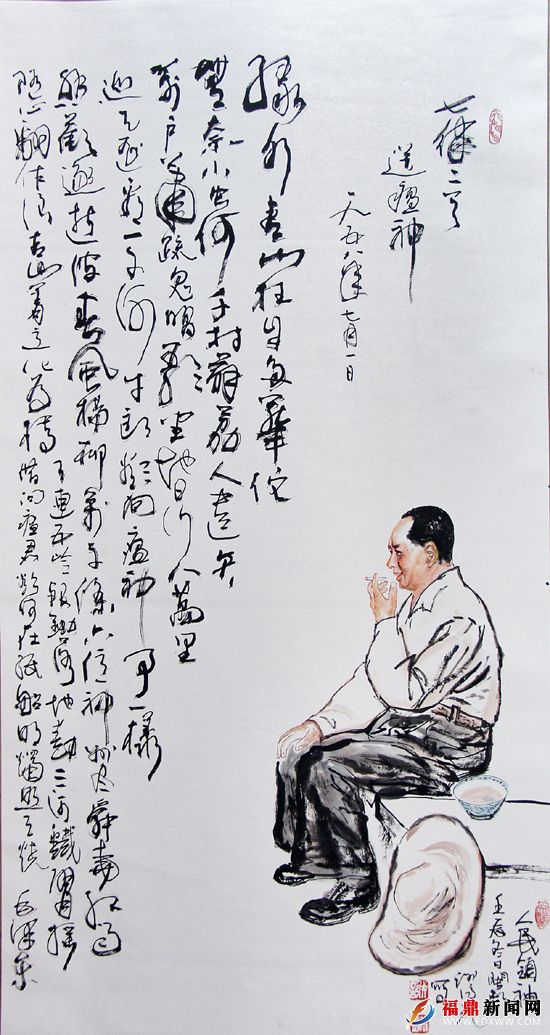 七律二首
送瘟神
一九五八年七月一日
绿水青山枉自多華佗
無奈小虫何千村薜荔人遗矢
萬户萧疏鬼唱歌坐地日行八萬里
巡天遥看一千河牛郎欲问瘟神事一樣
悲歡逐逝波春風楊柳萬千條六億神州尽舜尧红雨
随心翻作浪青山着意化为橋
天连五岭银锄落地动三河鐵臂摇
借问瘟君欲何往纸船明烛照天烧 毛泽东
人民領袖
壬辰冬日
福鼎新闻网
WWW.FDXWW.COM